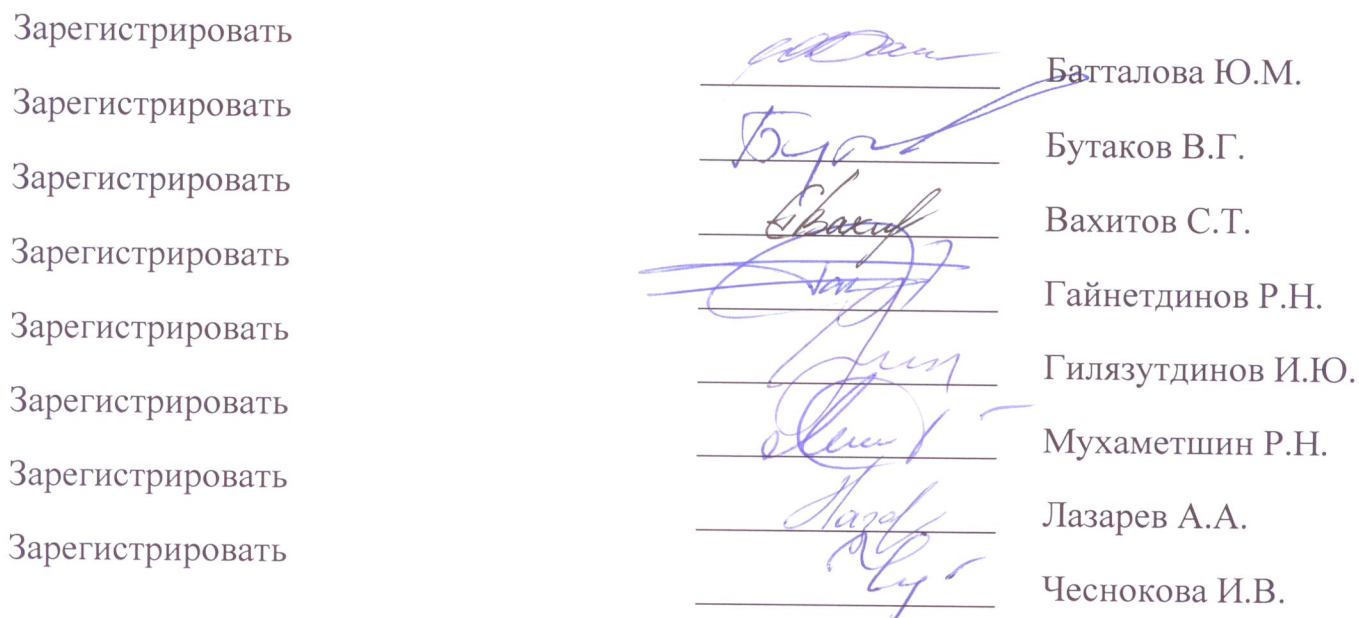 Зарегистрировать
Батталова Ю.М.
Зарегистрировать
Бутаков В.Г.
Зарегистрировать
Вахитов С.Т.
Зарегистрировать
Гайнетдинов Р.Н.
Зарегистрировать
Гилязутдинов И.Ю.
Зарегистрировать
Мухаметшин Р.Н.
Зарегистрировать
Лазарев А.А.
Зарегистрировать
Чеснокова И.В.